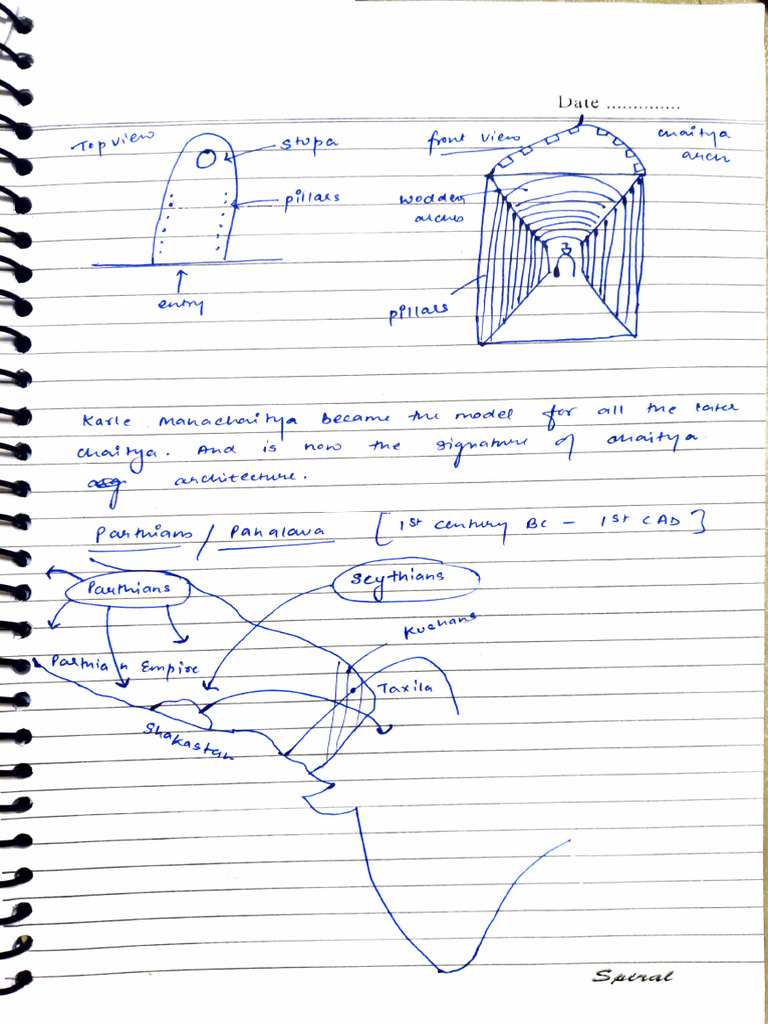 Date ..............
Top view
stupa
pillars
entry
front view
chaitya
arch
wooden
arches
pillars
Karle Mahachaitya became the model for all the later
chaitya. And is now the signature of chaitya
architecture.
Parthians / Pahalava [1st century BC - 1st C AD]
Parthians
Scythians
Kushans
Parthian Empire
Taxila
Shakastan
Spiral